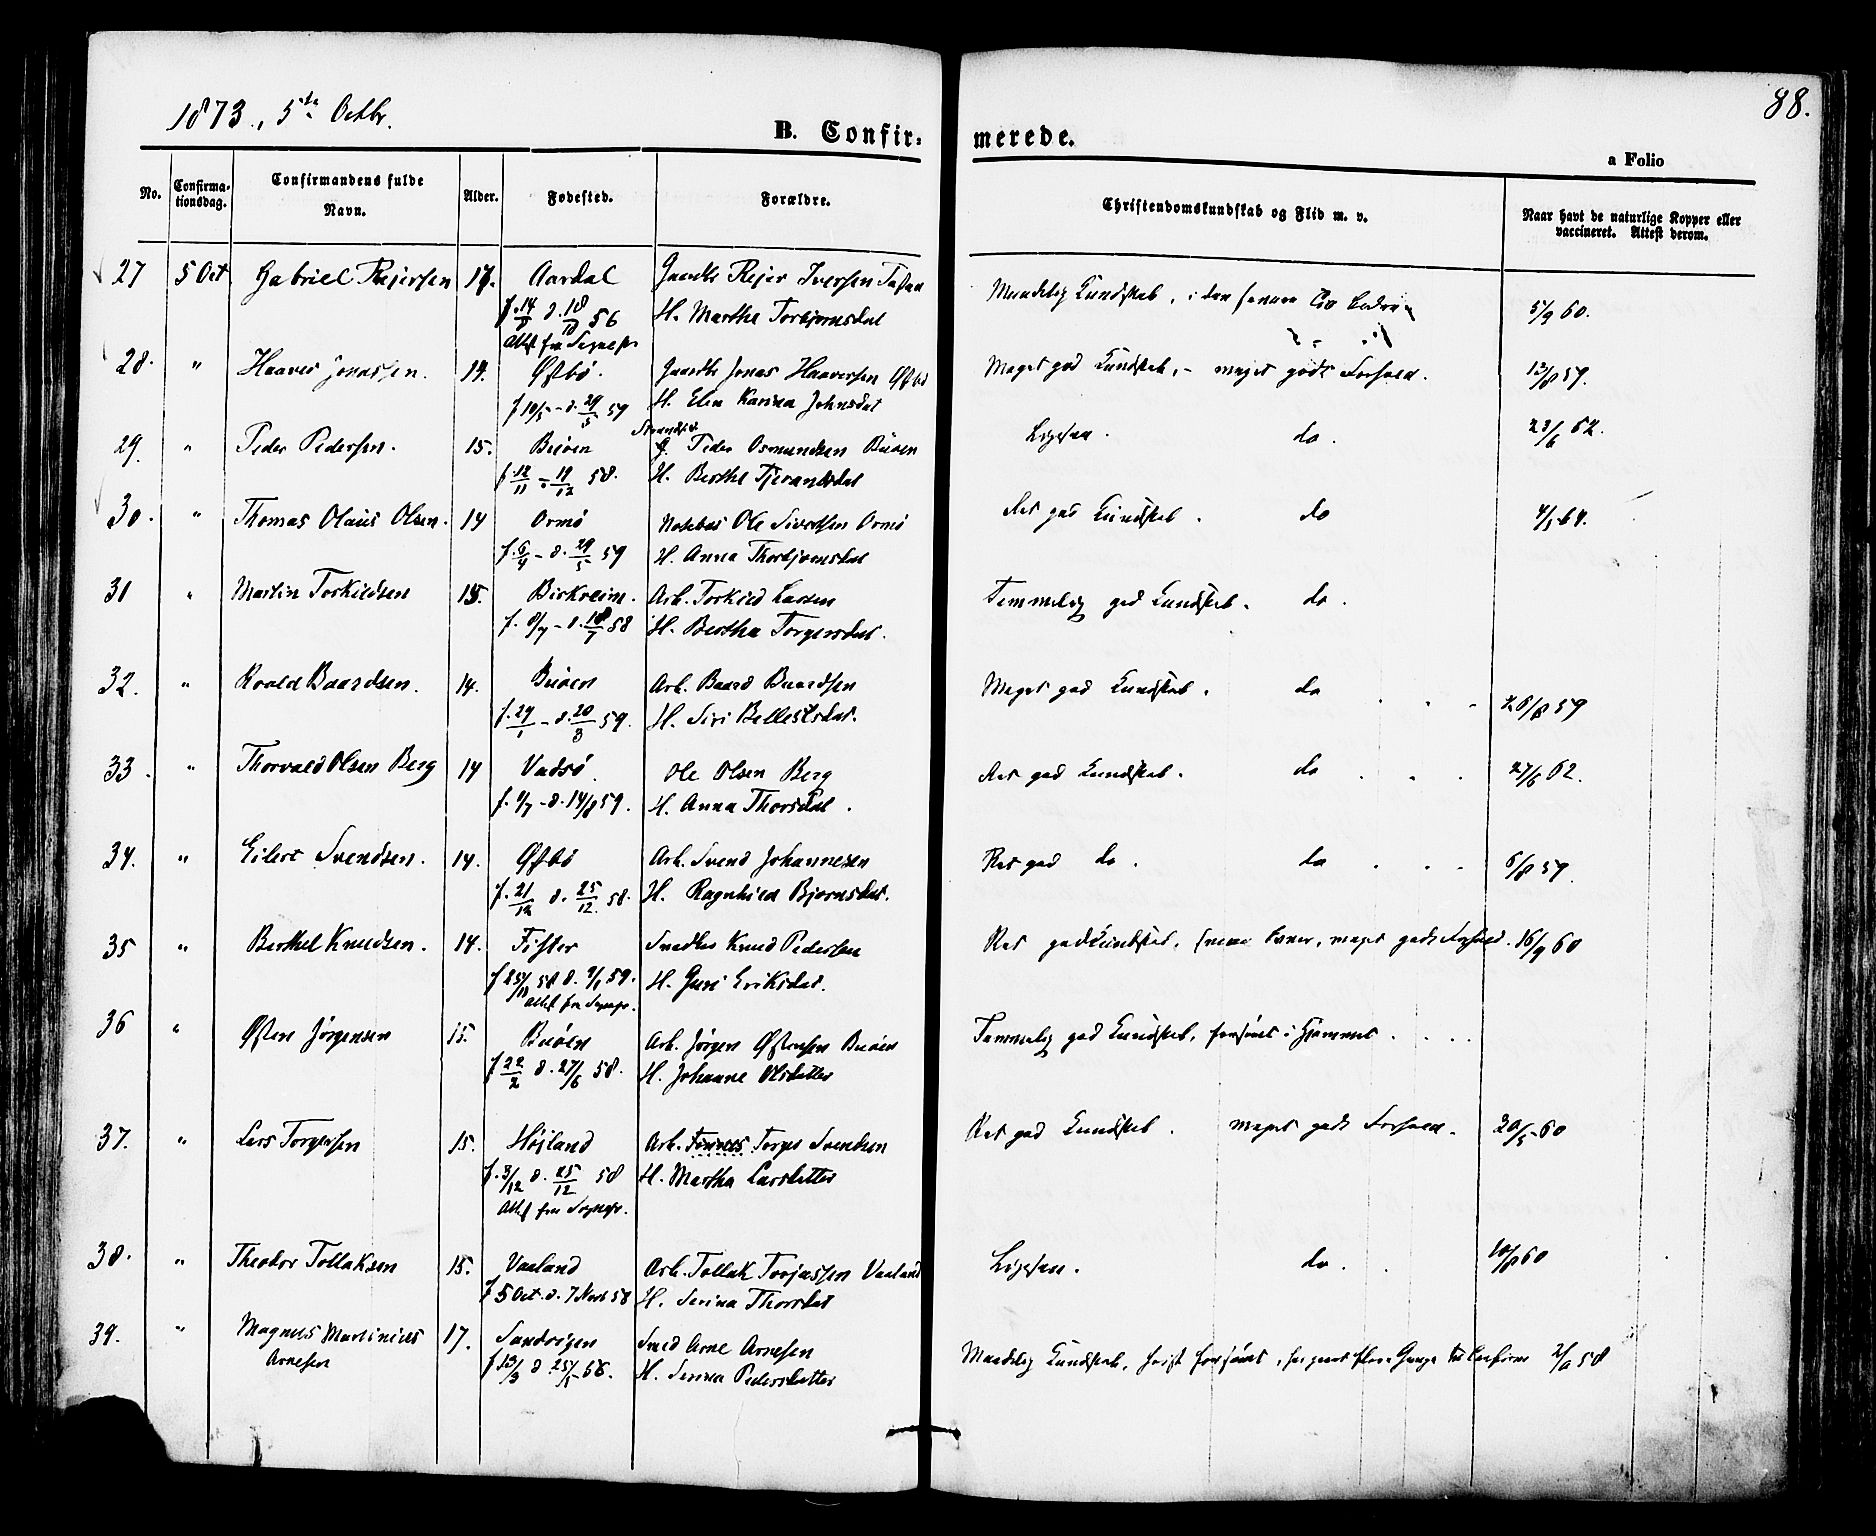 1873, 5te Octbr.
88.
B. Confirmerede.
a Folio
No. Confirmationsdag. Confirmandens fulde Navn. Alder. Fødested. Forældre. Christendomskundskab og Flid m. v. Naar havt de naturlige Kopper eller vaccineret. Attest derom.
27 5 Oct. Gabriel Rejersen 17. Aardal Gaardbr Rejer Iversen 5/9 60.
f. 14/9 d. 18/10 56 H. Marthe Torbjørnsdat
Attest fra Sognepr
28. " Haaver Jonassen. 14. Østbø. Gaardbr Jonas Haaversen Østbø Meget god Kundskab, - meget godt Forhold. 12/8 59.
f 10/5 - d. 29/5 59 H. Elen Karina Johnsdat
29. " Peder Pedersen. 15. Buøen Strandsid. G. Peder Osmundsen Buøen Ligesaa. do. 23/6 62.
f. 12/11 - 19/12 58. H. Berthe Tjerandsdat
30. " Thomas Olaus Olsen. 14 Ormø Ole Sivertsen Ormø Ret god Kundskab. do 4/5 64.
f. 6/4 - d. 29/5 59 H. Anna Thorbjørnsdat
31 " Martin Torkildsen 15. Birkreim. Arb. Torkild Larsen Temmelig god Kundskab. do.
f. 8/7 - d. 18/7 58 H. Bertha Torgersdat.
32. " Roald Baardsen. 14. Buøen Arb. Baard Baardsen Meget god Kundskab. do 26/8 59
f. 29/1 - d. 20/3 59. H. Siri Bellestsdat.
33. " Thorvald Olsen Berg 14 Vadsø. Ole Olsen Berg Ret god Kundskab. do 27/6 62.
f. 9/7 - d. 14/8 59. H. Anna Thorsdat.
34. " Eilert Svendsen. 14. Østbø Arb. Svend Johannesen Ret god do. do 6/8 59.
f. 21/12 d. 25/12. 58. H. Ragnhild Bjørnsdat.
35 " Berthel Knudsen. 14. Fister Knud Pedersen Ret god Kundskab, meget godt Forhold. 16/9 60
f 25/11 58 d. 9/1 59. H. Guri Eriksdat.
Attest fra Sognepr.
36 " Østen Jørgensen 15. Buøen Arb. Jørgen Østensen Buøen Temmelig god Kundskab, forsømt i Hjemmet.
f 22/2 d. 27/6 58. H. Johanne Olsdatter
37. " Lars Torgersen 15. Højland Arb. Torger Svendsen Ret god Kundskab. meget godt Forhold. 20/5 60
f. 3/12 d. 25/12 58 H. Martha Larsdatter
Attest fra Sognepr.
38. " Theodor Tollaksen 15. Vaaland Arb. Tollak Torjussen Vaaland Ligesaa. do. 10/8 60
f 5 Oct. d. 7 Novb 58 H. Serina Thorsdat
39. " Magnus Martinius 17. Sandvigen Smed Arne Arnesen Maadelig Kundskab, højst forsømt, 2/6 58
Arnesen f 13/3 d. 25/5 56. H. Serina Pedersdatter